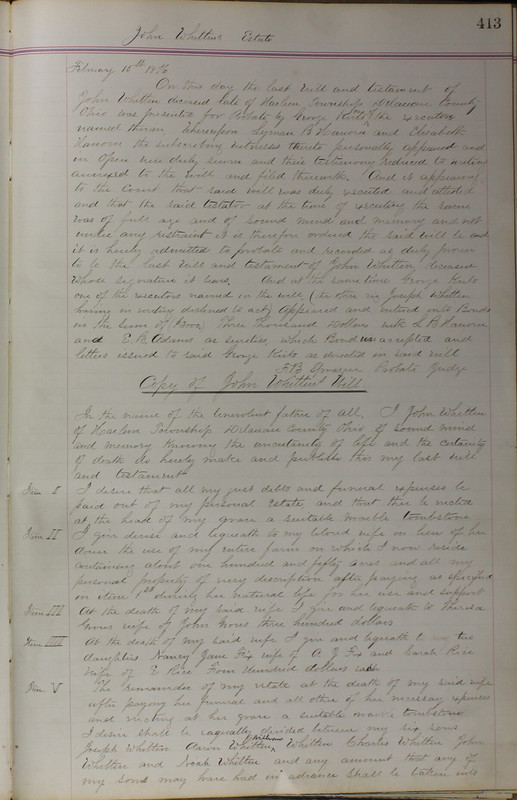 413
John Whitten Estate
February 15th 1876
On this day the last will and testament of
John Whitten deceased late of Harlem Township Delaware County
Ohio was presented for Probate by George Keits one of the executors
named therein Whereupon Lyman B Hanovn and Elisabeth
Hanovn the subscribing witnesses thereto personally appeared and
in open were duly sworn and their testimony reduced to writing
annexed to the will and filed therewith And it appearing
to the Court that said will was duly executed and attested
and that the said testator at the time of executing the same
was of full age and of sound mind and memory and not
under any restraint it is therefore ordered the said will be and
it is hereby admitted to probate and recorded as duly proven
to be the last will and testament of John Whitten deceased
Whose signature it bears And at the same time George Keits
one of the executors named in the will (the other viz Joseph Whitten
having in writing declined to act) appeared and entered into Bonds
in the sum of (3000) Three thousand Dollars with L B Hanovn
and E. B. Adams as sureties, which Bond was accepted and
letters issued to said George Keits as directed in said will
F B Probate Judge
Copy of John Whittens Will
In the name of the benevolent father of all, I John Whitten
of Harlem Township Delaware County Ohio of sound mind
and memory knowing the uncertainty of life and the certainty
of death do hereby make and publish this my last will
and testament
Item I I desire that all my just debts and funeral expenses be
paid out of my personal Estate, and that there be erected
at the head of my grave a suitable marble tombstone
Item II I give devise and bequeath to my beloved wife in lieu of her
dower the use of my entire farm on which I now reside
containing about one hundred and fifty acres and all my
personal property of every discription after paying as specified
in item 1st during her natural life for her use and support
Item III At the death of my said wife I give and bequeath to
wife of John three hundred dollars
Item IIII At the death of my said wife I give and bequeath to my two
daughters Nancy Jane Fix wife of A J Fix and Sarah Rice
wife of E Rice Four Hundred dollars each
Item V The remainder of my estate at the death of my said wife
after paying her funeral and all other of her necessary expenses
and erecting at her grave a suitable marble tombstone
I desire shall be equally divided between my six sons
Joseph Whitten Aaron Whitten, William Whitten Charles Whitten John
Whitten and Noah Whitten and any amount that any of
my sons may have had in advance shall be taken into